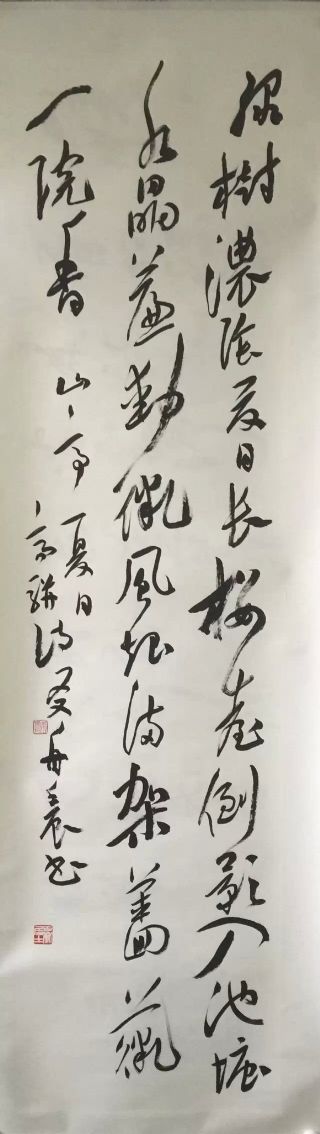 綠樹濃陰夏日長樓臺倒影入池塘
水晶簾動微風起滿架薔薇
一院香 山亭夏日
高駢詩